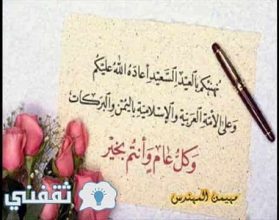 نهنئكم بالعيد السعيد أعاده الله عليكم
وعلى الأمة العربية والإسلامية باليمن والبركات
وكل عام وأنتم بخير
مهيمن المهندس
ثقفني